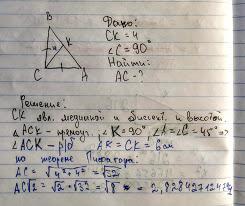 B
K
C
A
Дано:
CK = 4
∠C = 90°
Найти:
AC - ?
Решение:
CK явл. медианой и биссект. и высотой.
∠ACK - прямоуг. ∠K = 90° ∠A = ∠C = 45° =>
∠ACK - р/б AK = CK =
по теореме Пифагора:
AC = √4² + 4² = √32
AC√2 = √2 · √32 = √8 = 2,828427124